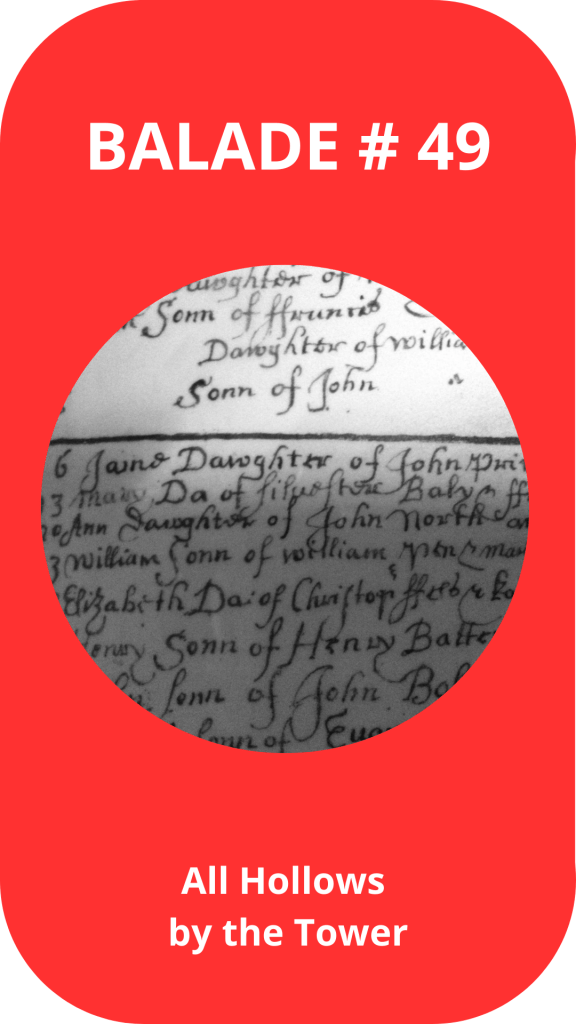 BALADE # 49
Dawghter of
Sonn of ffruncis
Dawghter of willia
Sonn of John
6 Jane Dawghter of John Pri
3 mary Da of siluester Baly & ff
20 Ann Dawghter of John North an
3 William Sonn of william Pen & mar
Elizabeth Da: of Christop ffeb & Ko
Henry Sonn of Henry Batte
sonn of John Bol
sonn of Eua
All Hollows
by the Tower